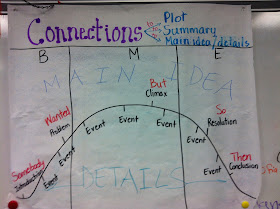 Connections
to
Plot
Summary
Main idea/details
B
M
E
MAIN IDEA
But
Climax
Wanted
Problem
Event
Event
Event
So
Resolution
Event
Event
Event
Somebody
Introduction
Then
Conclusion
DETAILS